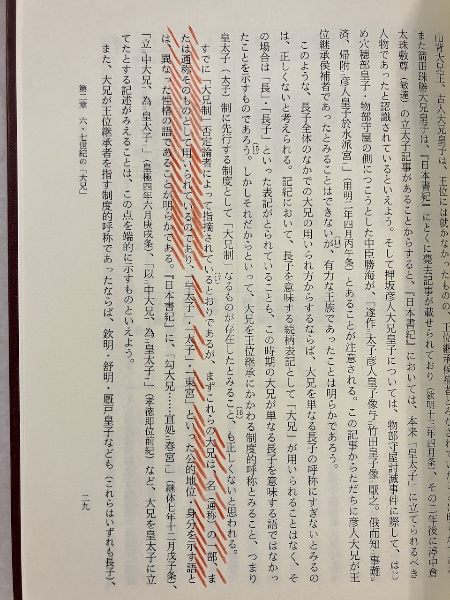 山背大兄王、古人大兄皇子は、王位には就かなかったものの、
また箭田珠勝大兄皇子は、『日本書紀』にとくに薨去記事が載せられており（欽明十三年四月条）、その二年後に渟中倉
太珠敷尊（敏達）の立太子記事があることからすると、『日本書紀』においては、本来「皇太子」に立てられるべき
人物であったと認識されているといえよう。そして押坂彦人大兄皇子については、物部守屋討滅事件に際して、はじ
め穴穂部皇子・物部守屋の側につこうとした中臣勝海が、「遂作太子彦人皇子像与竹田皇子像厭之。俄而知事難
済、帰附彦人皇子於水派宮」（用明二年四月丙午条）とあることが注意される。この記事からただちに彦人大兄が王
位継承候補者であったとみることはできないが、有力な王族であったことは明らかであろう。
このような、長子全体のなかでの大兄の用いられ方からするならば、大兄を単なる長子の呼称にすぎないとみるの
は、正しくないと考えられる。記紀において、長子を意味する続柄表記として「大兄」が用いられることはなく、そ
の場合は「長」・「長子」といった表記がとられていることも、この時期の大兄が単なる長子を意味する語ではなかっ
たことを示すものであろう。しかしそれだからといって、大兄を王位継承にかかわる制度的呼称とみること、つまり
皇太子（太子）制に先行する制度として「大兄制」なるものが存在したとみること、も正しくないと思われる。
すでに「大兄制」否定論者によって指摘されているとおりであるが、まずこれらの大兄は、名（通称）の一部、ま
たは通称そのものとして用いられているのであり、「皇太子」・「太子」・「東宮」といった公的地位・身分を示す語と
は、異なった性格の語であることが明らかである。『日本書紀』に、「勾大兄……宜処春宮」（継体七年十二月戊子条）、
「立中大兄、為皇太子」（皇極四年六月庚戌条）、「以中大兄、為皇太子」（孝徳即位前紀）など、大兄を皇太子に立
てたとする記述がみえることは、この点を端的に示すものといえよう。
また、大兄が王位継承者を指す制度的呼称であったならば、欽明・舒明・厩戸皇子なども（これらはいずれも長子）、
第二章 六・七世紀の「大兄」
二九